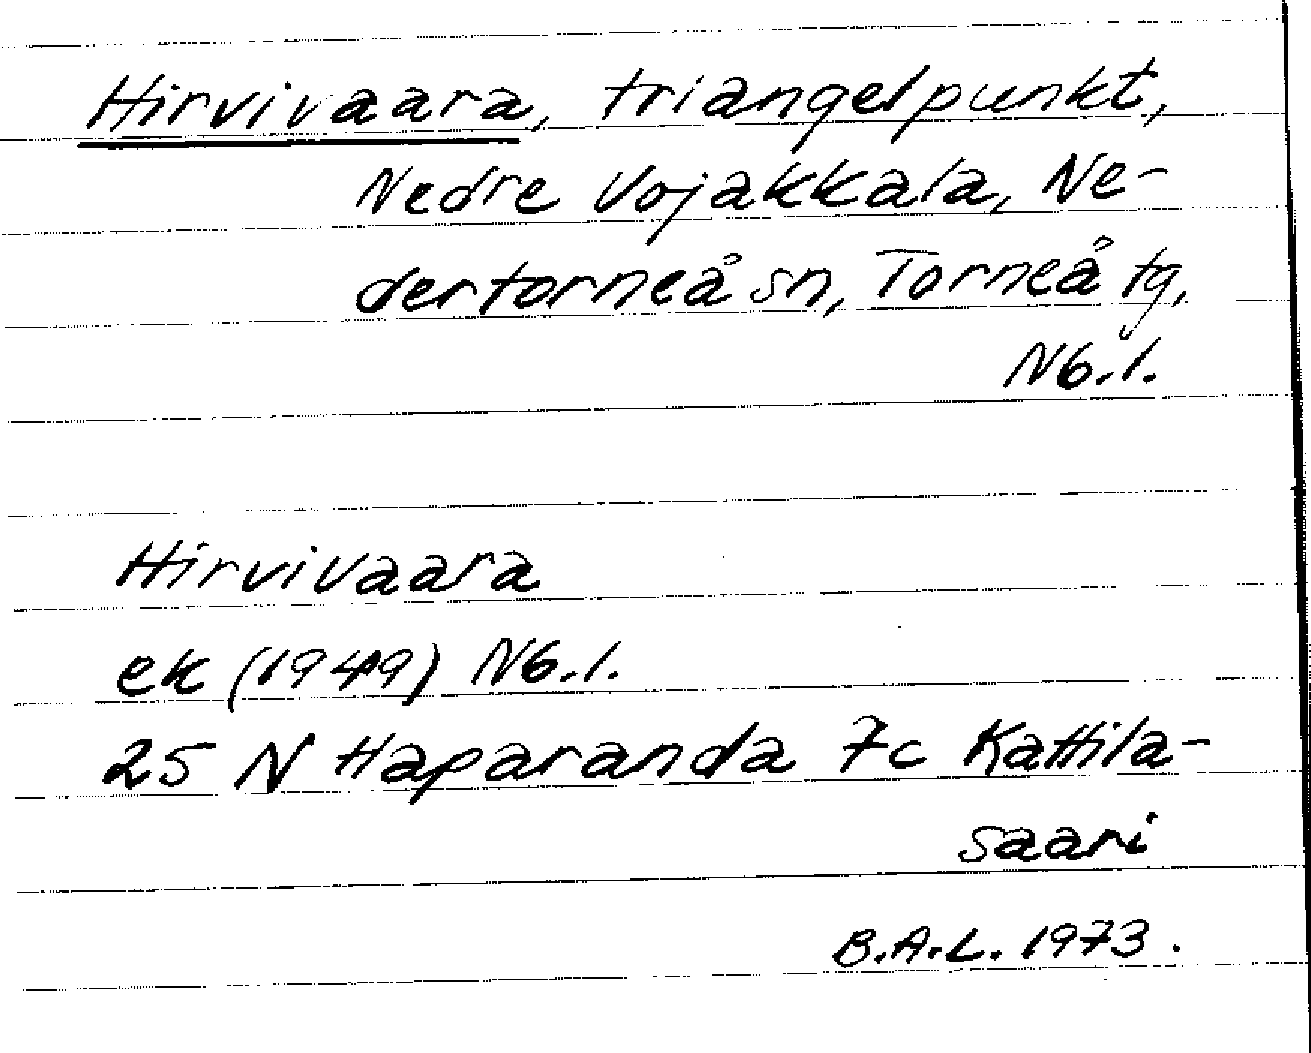 Hirvivaara, triangelpunkt,
Nedre Vojakkala, Ne-
dertorneå sn, Torneå tg,
Nb.l.
Hirvivaara
ek (1949) Nb.l.
25 N Haparanda 7c Kattila-
saari
B.A.L. 1973.